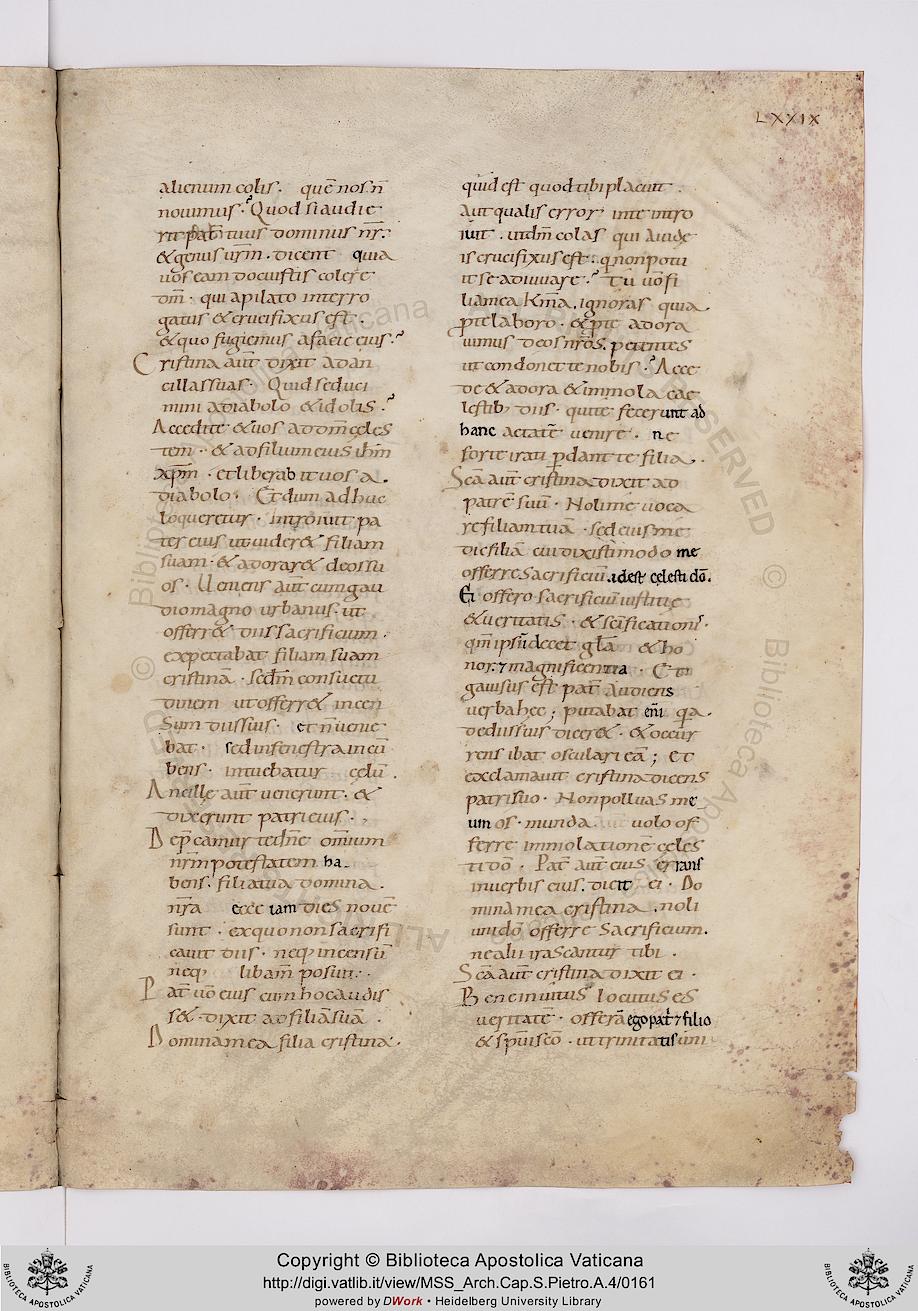 LXXIX
alienum colis. quē nos n̄
nouimus. Quod si audie
rit pat̄ tuus dominus nr̄.
& genus ur̄m. dicent quia
uos eam docuistis colere
dm̄. qui a pilato interro
gatus & crucifixus est.
& quo fugiemus a facie eius.
Cristina aut̄ dixit ad an
cillas suas. Quid seduci
mini a diabolo & idolis.
Accedite & uos ad dm̄ cęles
tem. & ad filium eius ihm̄
xpm̄. et liberabit uos a
diabolo. Et dum adhuc
loqueretur. introiuit pa
ter eius ut uider& filiam
suam. & adorar& deos su
os. Ueniens aut̄ cum gau
dio magno urbanus. ut
offerr& diis sacrificium.
expectabat filiam suam
cristina. sedm̄ consuetu
dinem ut offerr& incen
sum diis suis. et n̄ uenie
bat. sed in fenestra incū
bens. intuebatur cęlū.
Ancille aut̄ uenerunt. &
dixerunt patri eius.
Depcamur te dn̄e omnium
nr̄m potestatem ha
bens. filia tua domina.
nr̄a ecce iam dies nouē
sunt. ex quo non sacrifi
cauit diis. neq; incensū
neq; libam̄ posuit.
Pat̄ uō eius cum hoc audis
s&. dixit ad filiā suā.
Domina mea filia cristina.
quid est quod tibi placuit.
Aut qualis error in te intro
iuit. ut dm̄ colas qui a iude
is crucifixus est. q non potu
it se adiuuare. Tu uō fi
lia mea km̄a. ignoras quia
pte laboro. & pte adora
uimus deos nr̄os. petentes
ut condonet te nobis. Acce
de & adora & immola cae
lestib; diis. qui te fecerunt ad
hanc aetatē uenire. ne
forte irati pdant te filia.
Scā aut̄ cristina dixit ad
patrē suū. Noli me uoca
re filiam tuā. sed eius me
dic filiā cui dixisti modo me
offerre sacrificiū. idest cęlesti dō.
Ei offero sacrificiū iustitię
& ueritatis. & scīficationis.
qm̄ ipsū decet glā & ho
nor. ⁊ magnificentia. Et
gauisus est pat̄ audiens
uerba hec; putabat eni qa.
de diis suis dicer&. & occur
rens ibat osculari eā; et
exclamauit cristina dicens
patri suo. Non polluas me
um os. munda uolo of
ferre immolationē celes
ti dō. Pat̄ aut̄ eius errans
in uerbis eius. dicit ei. Do
mina mea cristina. noli
uni dō offerre sacrificium.
ne alii irascantur tibi.
Scā aut̄ cristina dixit ei.
Bene inuitus locutus es
ueritatē. offerā ego pat̄ ⁊ filio
& spui scō. ut trinitatis uni
Copyright © Biblioteca Apostolica Vaticana
http://digi.vatlib.it/view/MSS_Arch.Cap.S.Pietro.A.4/0161
powered by DWork • Heidelberg University Library